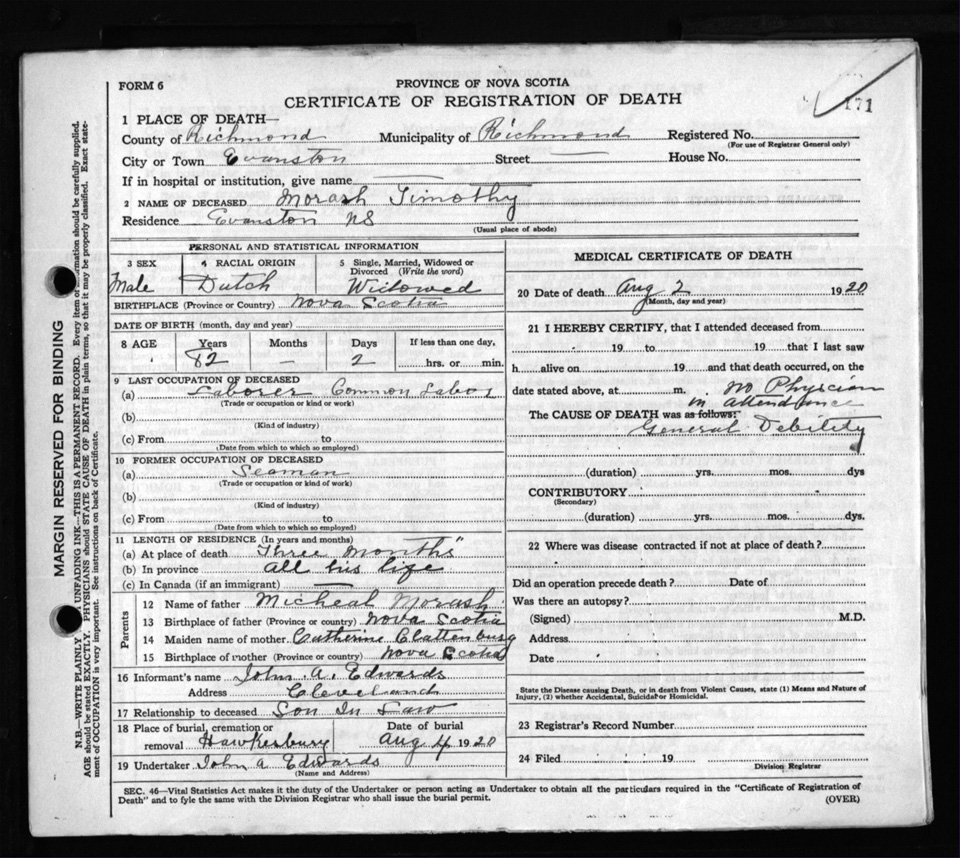 FORM 6
PROVINCE OF NOVA SCOTIA
CERTIFICATE OF REGISTRATION OF DEATH
171
1 PLACE OF DEATH—
County of Richmond Municipality of Richmond Registered No.
(For use of Registrar General only)
City or Town Evanston Street — House No.
If in hospital or institution, give name —
2 NAME OF DECEASED Morash Timothy
Residence Evanston NS
(Usual place of abode)
PERSONAL AND STATISTICAL INFORMATION
3 SEX 4 RACIAL ORIGIN 5 Single, Married, Widowed or Divorced (Write the word)
Male Dutch Widowed
BIRTHPLACE (Province or Country) Nova Scotia
DATE OF BIRTH (month, day and year)
8 AGE Years Months Days If less than one day,
82 — 2 hrs. or min.
9 LAST OCCUPATION OF DECEASED
(a) Laborer Common Labor
(Trade or occupation or kind or work)
(b)
(Kind of industry)
(c) From to
(Date from which to which so employed)
10 FORMER OCCUPATION OF DECEASED
(a) Seaman
(Trade or occupation or kind of work)
(b)
(Kind of industry)
(c) From to
(Date from which to which so employed)
11 LENGTH OF RESIDENCE (In years and months)
(a) At place of death "Three months"
(b) In province all his life
(c) In Canada (if an immigrant) —
Parents
12 Name of father Micheal Morash
13 Birthplace of father (Province or country) Nova Scotia
14 Maiden name of mother Catherine Clattenburg
15 Birthplace of mother (Province or country) Nova Scotia
16 Informant's name John A. Edwards
Address Cleveland
17 Relationship to deceased Son In Law
18 Place of burial, cremation or removal Hawkesbury Date of burial Aug 4 1920
19 Undertaker John A Edwards
(Name and Address)
MEDICAL CERTIFICATE OF DEATH
20 Date of death Aug 2 1920
(Month, day and year)
21 I HEREBY CERTIFY, that I attended deceased from
19 to 19 that I last saw
h alive on 19 and that death occurred, on the
date stated above, at m. No Physician
in attendance
The CAUSE OF DEATH was as follows:
General Debility
(duration) yrs. mos. dys
CONTRIBUTORY
(Secondary)
(duration) yrs. mos. dys.
22 Where was disease contracted if not at place of death?
Did an operation precede death? Date of
Was there an autopsy?
(Signed) M.D.
Address
Date
State the Disease causing Death, or in death from Violent Causes, state (1) Means and Nature of
Injury, (2) whether Accidental, Suicidal or Homicidal.
23 Registrar's Record Number
24 Filed 19
Division Registrar
SEC. 46—Vital Statistics Act makes it the duty of the Undertaker or person acting as Undertaker to obtain all the particulars required in the "Certificate of Registration of
Death" and to fyle the same with the Division Registrar who shall issue the burial permit. (OVER)
MARGIN RESERVED FOR BINDING
N.B.—WRITE PLAINLY UNFADING INK—THIS IS A PERMANENT RECORD. Every item of information should be carefully supplied.
AGE should be stated EXACTLY. PHYSICIANS should STATE CAUSE OF DEATH in plain terms, so that it may be properly classified. Exact state-
ment of OCCUPATION is very important. See instructions on back of Certificate.